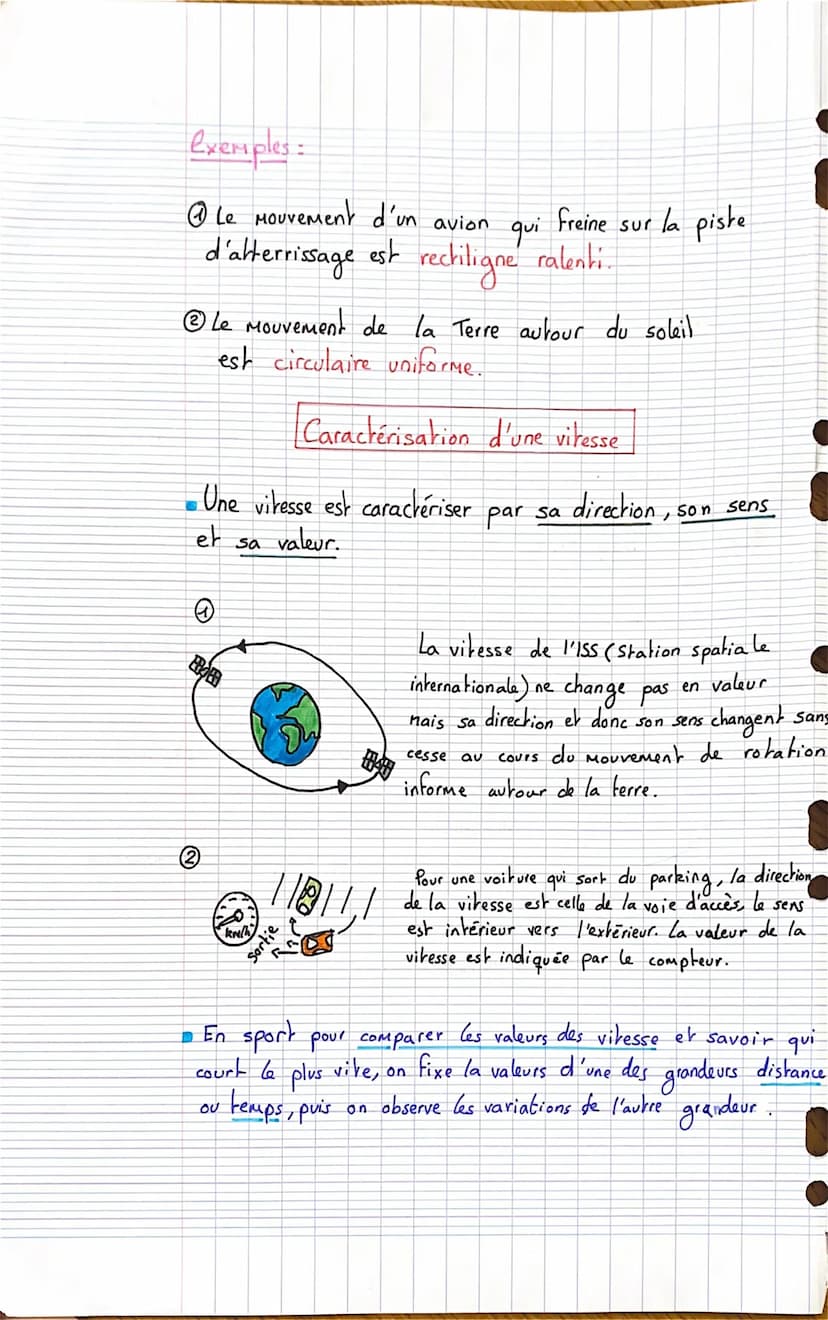 Exemples :
① Le mouvement d'un avion qui freine sur la piste
d'atterrissage est rectiligne ralenti.
② Le mouvement de la Terre autour du soleil
est circulaire uniforme.
Caractérisation d'une vitesse
Une vitesse est caractériser par sa direction, son sens
et sa valeur.
①
La vitesse de l'ISS (Station spatiale
internationale) ne change pas en valeur
mais sa direction et donc son sens changent sans
cesse au cours du mouvement de rotation
informe autour de la terre.
②
Pour une voiture qui sort du parking, la direction
de la vitesse est celle de la voie d'accès, le sens
est intérieur vers l'extérieur. La valeur de la
vitesse est indiquée par le compteur.
km/h
sortie
En sport pour comparer les valeurs des vitesse et savoir qui
court le plus vite, on fixe la valeurs d'une des grandeurs distance
ou temps, puis on observe les variations de l'autre grandeur.